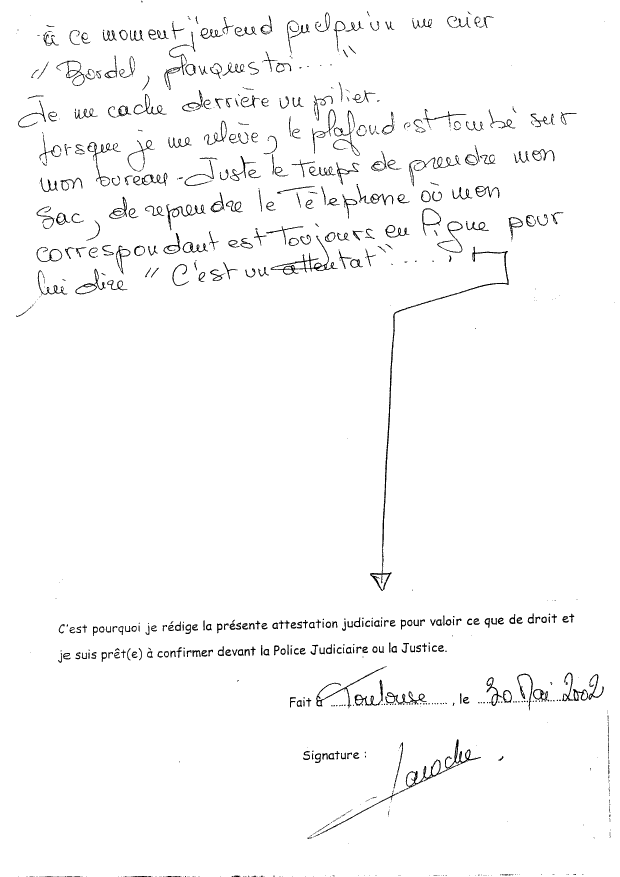 à ce moment j'entend quelqu'un me crier
" Bordel, planques toi...."
Je me cache derrière un pilier.
Lorsque je me relève, le plafond est tombé sur
mon bureau - Juste le temps de prendre mon
sac, de reprendre le Télephone où mon
correspondant est toujours en ligne pour
lui dire " C'est un attentat".....,
C'est pourquoi je rédige la présente attestation judiciaire pour valoir ce que de droit et
je suis prêt(e) à confirmer devant la Police Judiciaire ou la Justice.
Fait à Toulouse, le 30 Mai 2002
Signature : Laroche